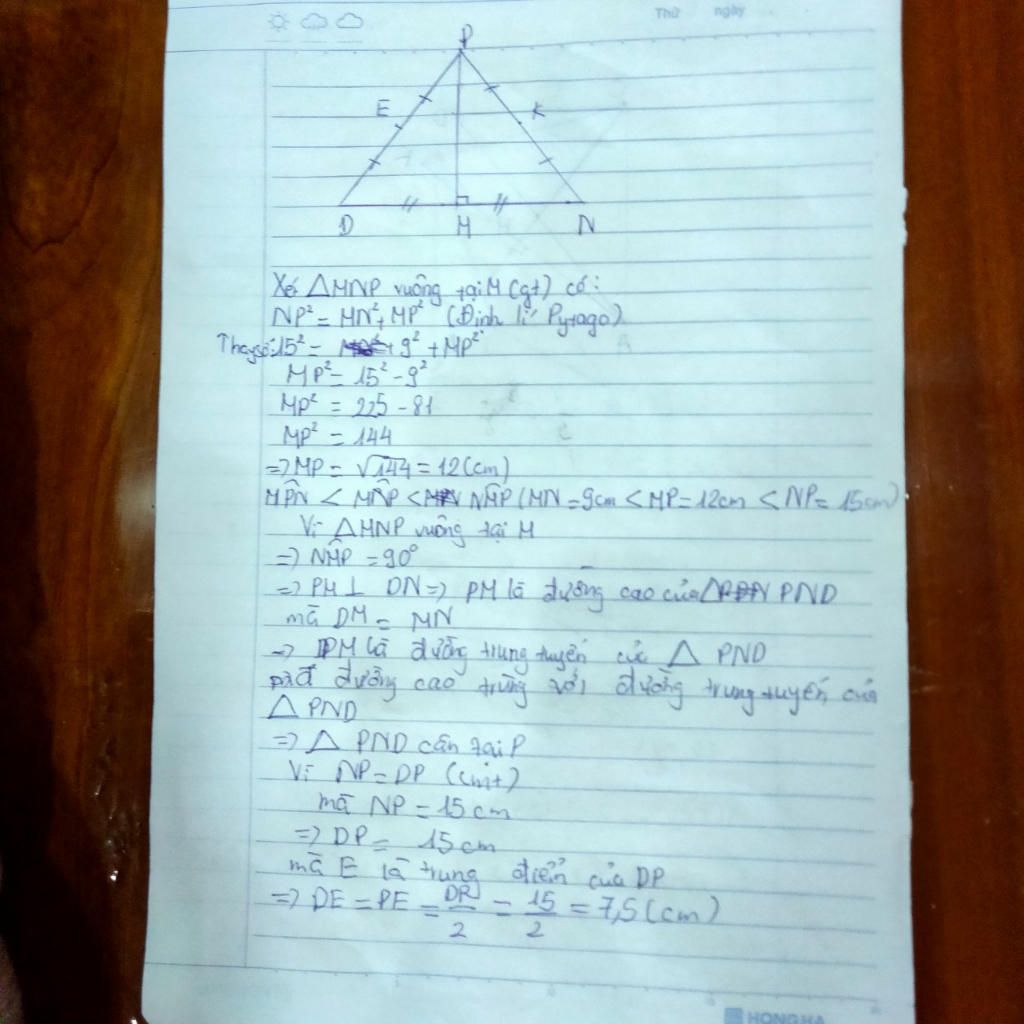 Thứ ngày
P
E K
D M N
Xét △MNP vuông tại M (gt) có:
NP² = MN² + MP² (Định lí Pytago)
Thay số: 15² = 9² + MP²
MP² = 15² - 9²
MP² = 225 - 81
MP² = 144
=> MP = √144 = 12 (cm)
MP̂N < MN̂P < NM̂P (MN = 9cm < MP = 12cm < NP = 15cm)
Vì △MNP vuông tại M
=> NM̂P = 90°
=> PM ⊥ DN => PM là đường cao của △ PND
mà DM = MN
=> PM là đường trung tuyến của △ PND
đường cao trùng với đường trung tuyến của
△ PND
=> △ PND cân tại P
Vì NP = DP (cmt)
mà NP = 15 cm
=> DP = 15 cm
mà E là trung điểm của DP
=> DE = PE = DP/2 = 15/2 = 7,5 (cm)
HONG HA